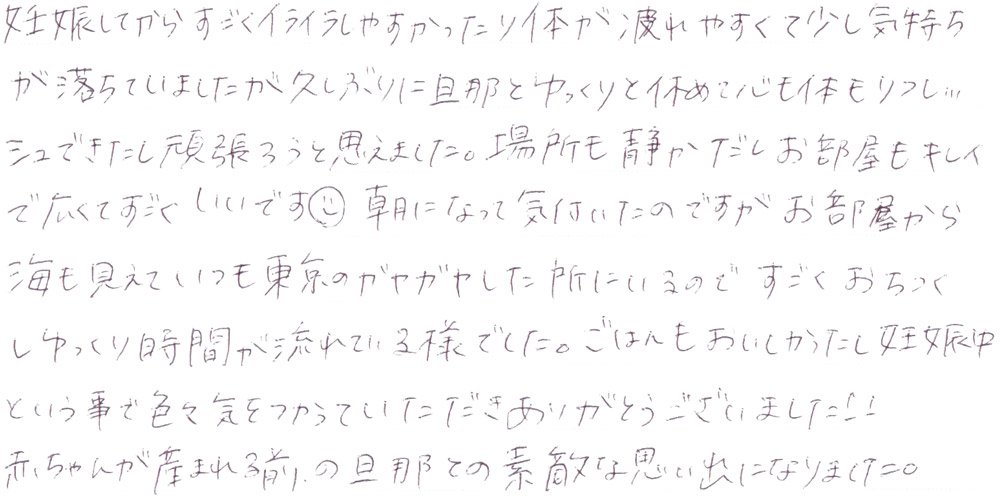 妊娠してからすごくイライラしやすかったり体が疲れやすくて少し気持ち
が落ちていましたが久しぶりに旦那とゆっくりと休めて心も体もリフレッ
シュできたし頑張ろうと思えました。場所も静かだしお部屋もキレイ
で広くてすごくいいです☺ 朝になって気付いたのですがお部屋から
海も見えていつも東京のガヤガヤした所にいるのですごくおちつく
しゆっくり時間が流れている様でした。ごはんもおいしかったし妊娠中
という事で色々気をつかっていただきありがとうございました!!
赤ちゃんが産まれる前の旦那との素敵な思い出になりました。